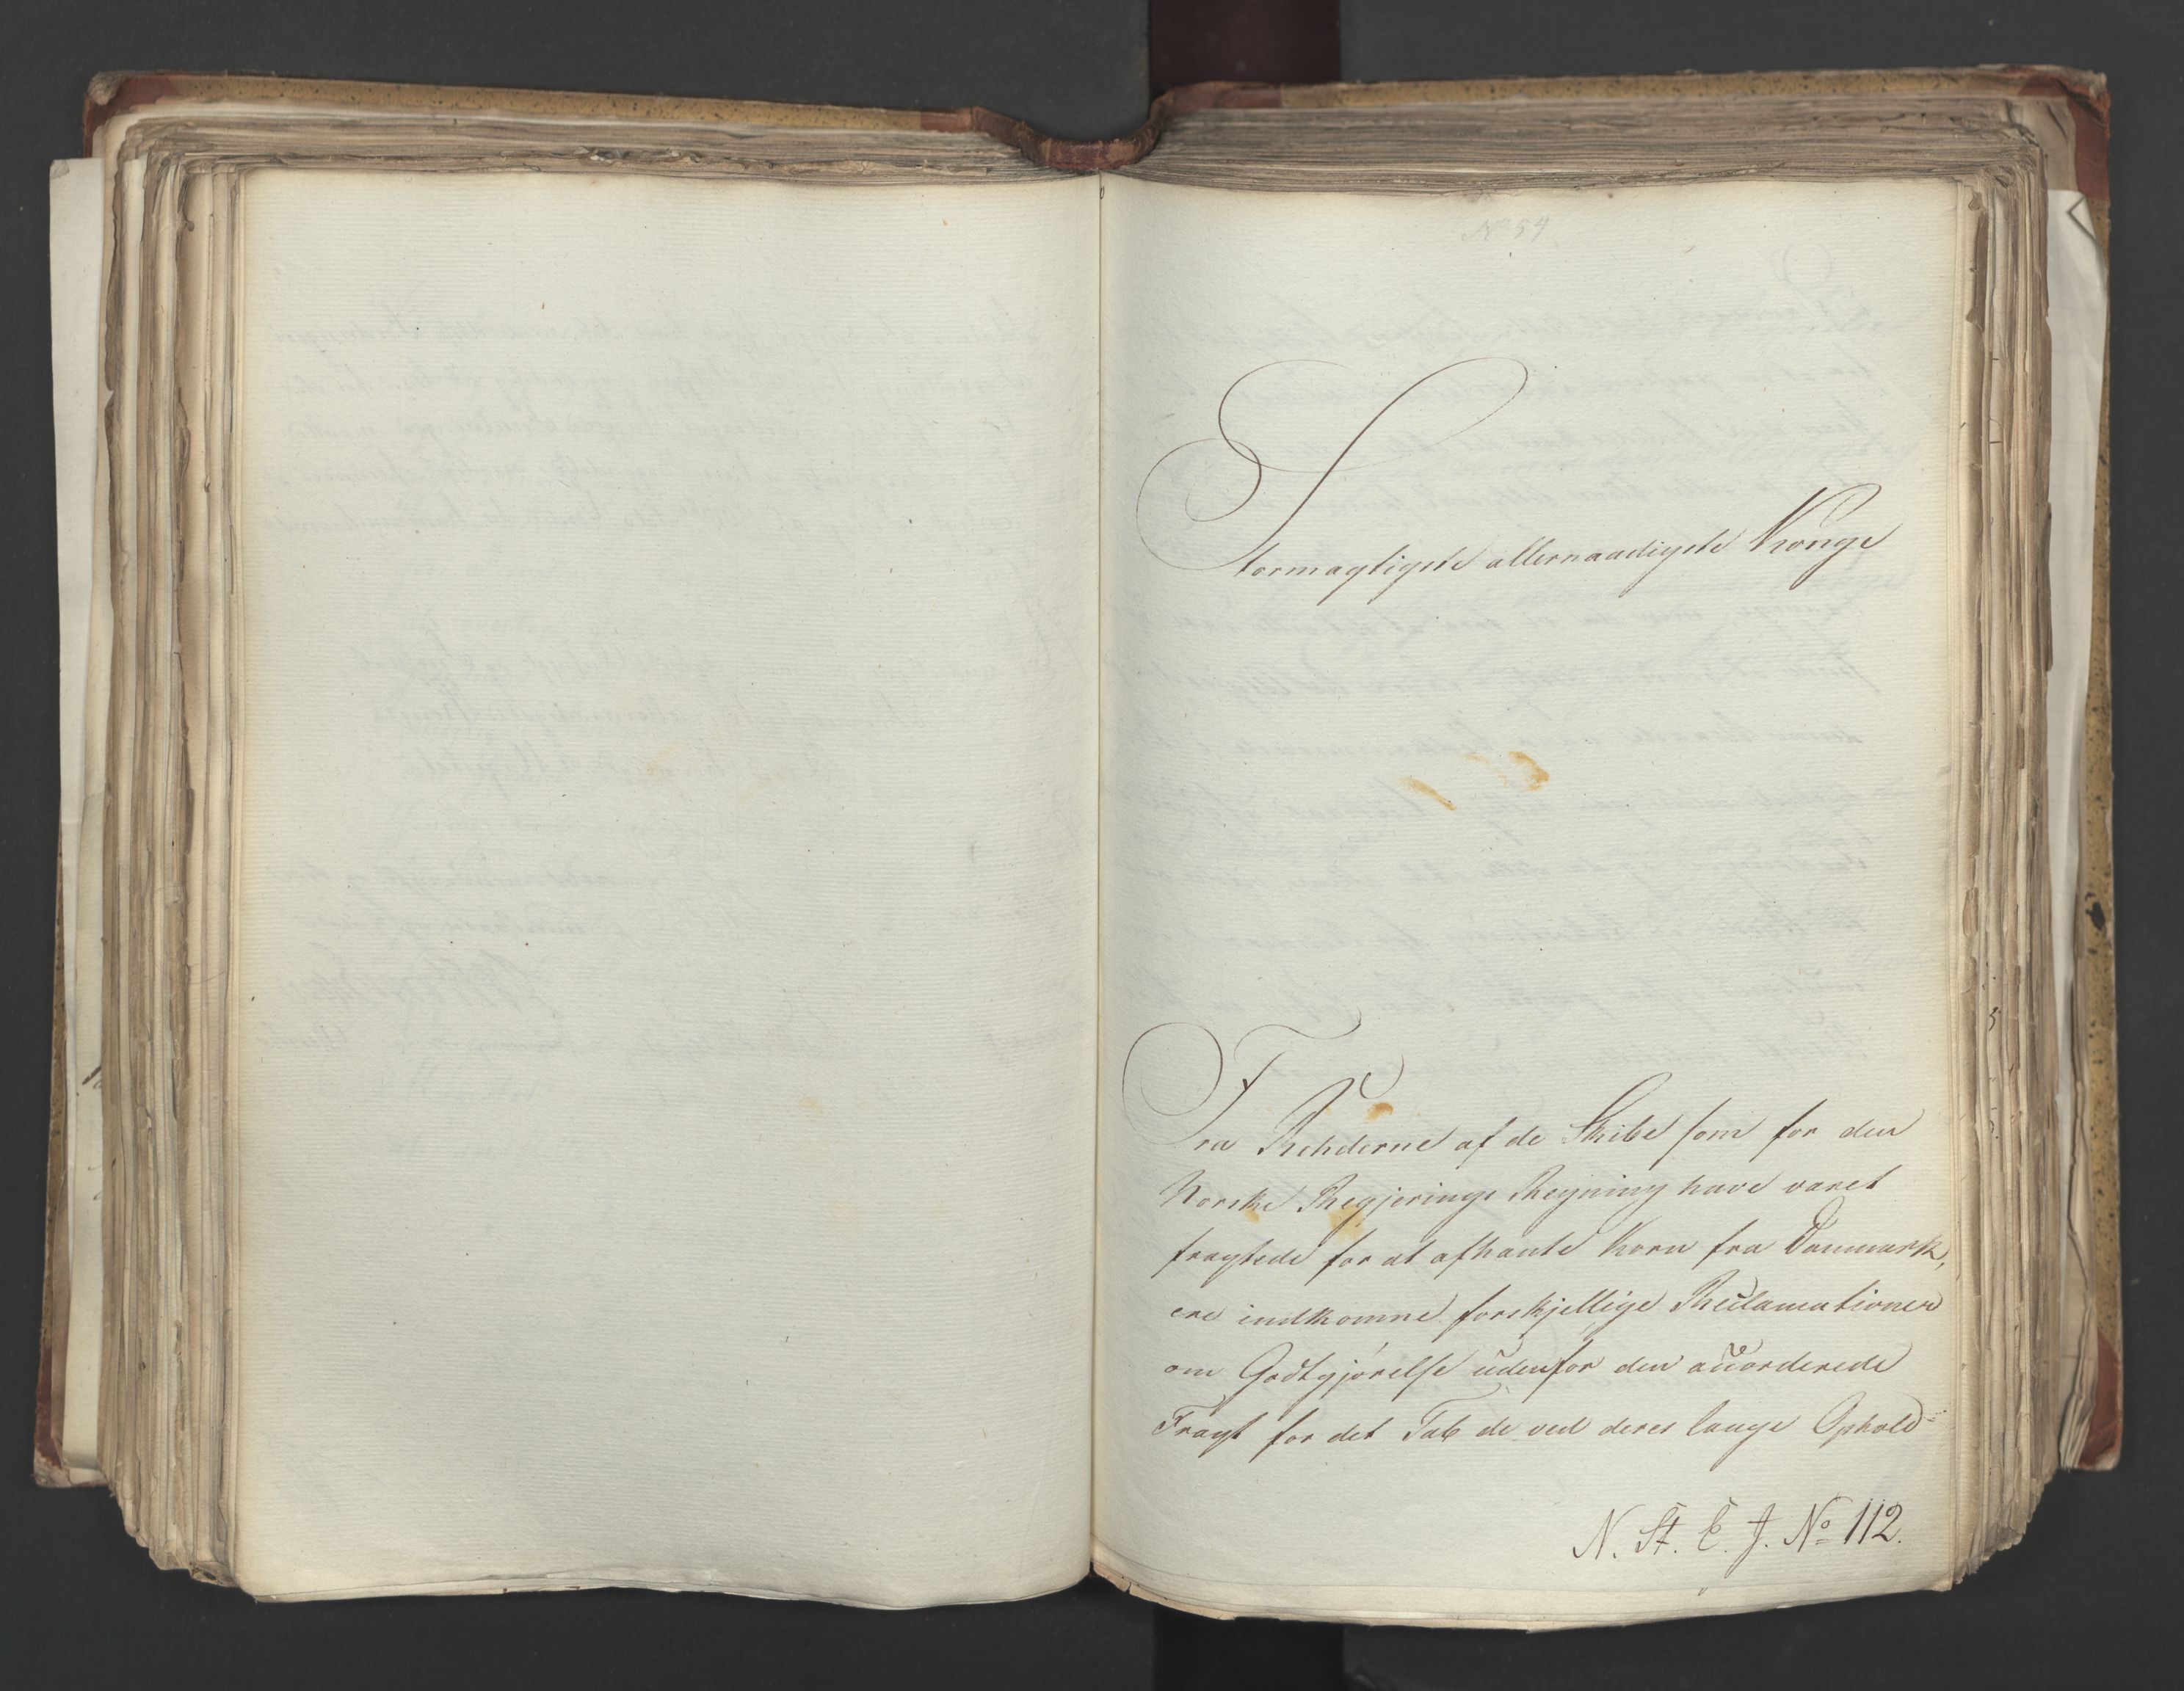 No 54
Stormagtigste allernaadigste Konge
Fra Rehderne af de Skibe som for den
Norske Regjerings Regning have været
fragtede for at afhente Korn fra Danmark,
ere indkomne forskjellige Reclamationer
om Godtgjørelse udenfor den accorderede
Fragt for det Tab de ved deres lange Ophold
N. St. E. J. No 112.